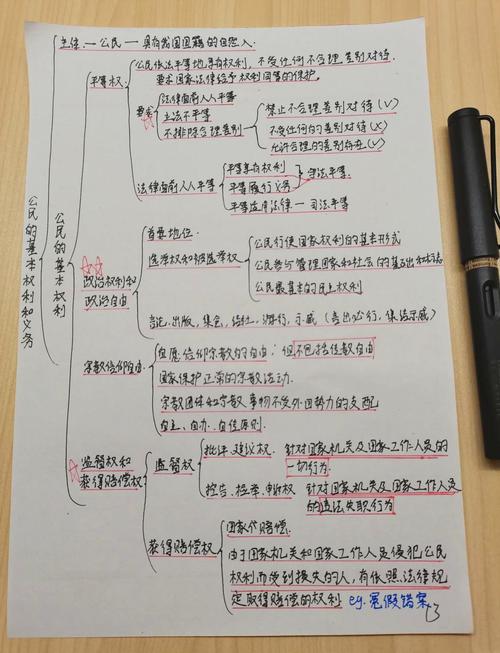 主体 — 公民 — 具有我国国籍的自然人.
公民依法平等地享有权利，不受任何不合理差别对待.
要求国家法律给予权利同等的保护.
平等权.
要求
法律面前人人平等
立法不平等
不排除合理差别
禁止不合理差别对待(√)
不受任何的差别对待(×)
允许合理的差别存在(√)
法律面前人人平等
平等享有权利
平等履行义务
守法平等.
平等适用法律 — 司法平等
公民的基本权利和义务
公民的基本权利
政治权利和
政治自由
首要地位.
选举权和被选举权
公民行使国家权利的基本形式
公民参与管理国家和社会的基础和标志
公民最基本的民主权利
言论，出版，集会，结社，游行，示威
宗教信仰自由.
自愿信仰宗教的自由；但不包括任教自由
国家保护正常的宗教活动.
宗教团体和宗教事物不受外国势力的支配
自主、自办、自传原则.
监督权和
获得赔偿权
监督权
批评、建议权. 针对国家机关及国家工作人员的
一切行为.
控告、检举、申诉权 针对国家机关及国家工作人员
的违法失职行为
获得赔偿权
国家代赔偿.
由于国家机关和国家工作人员侵犯公民
权利而受到损失的人，有依照法律规
定取得赔偿的权利. eg. 冤假错案